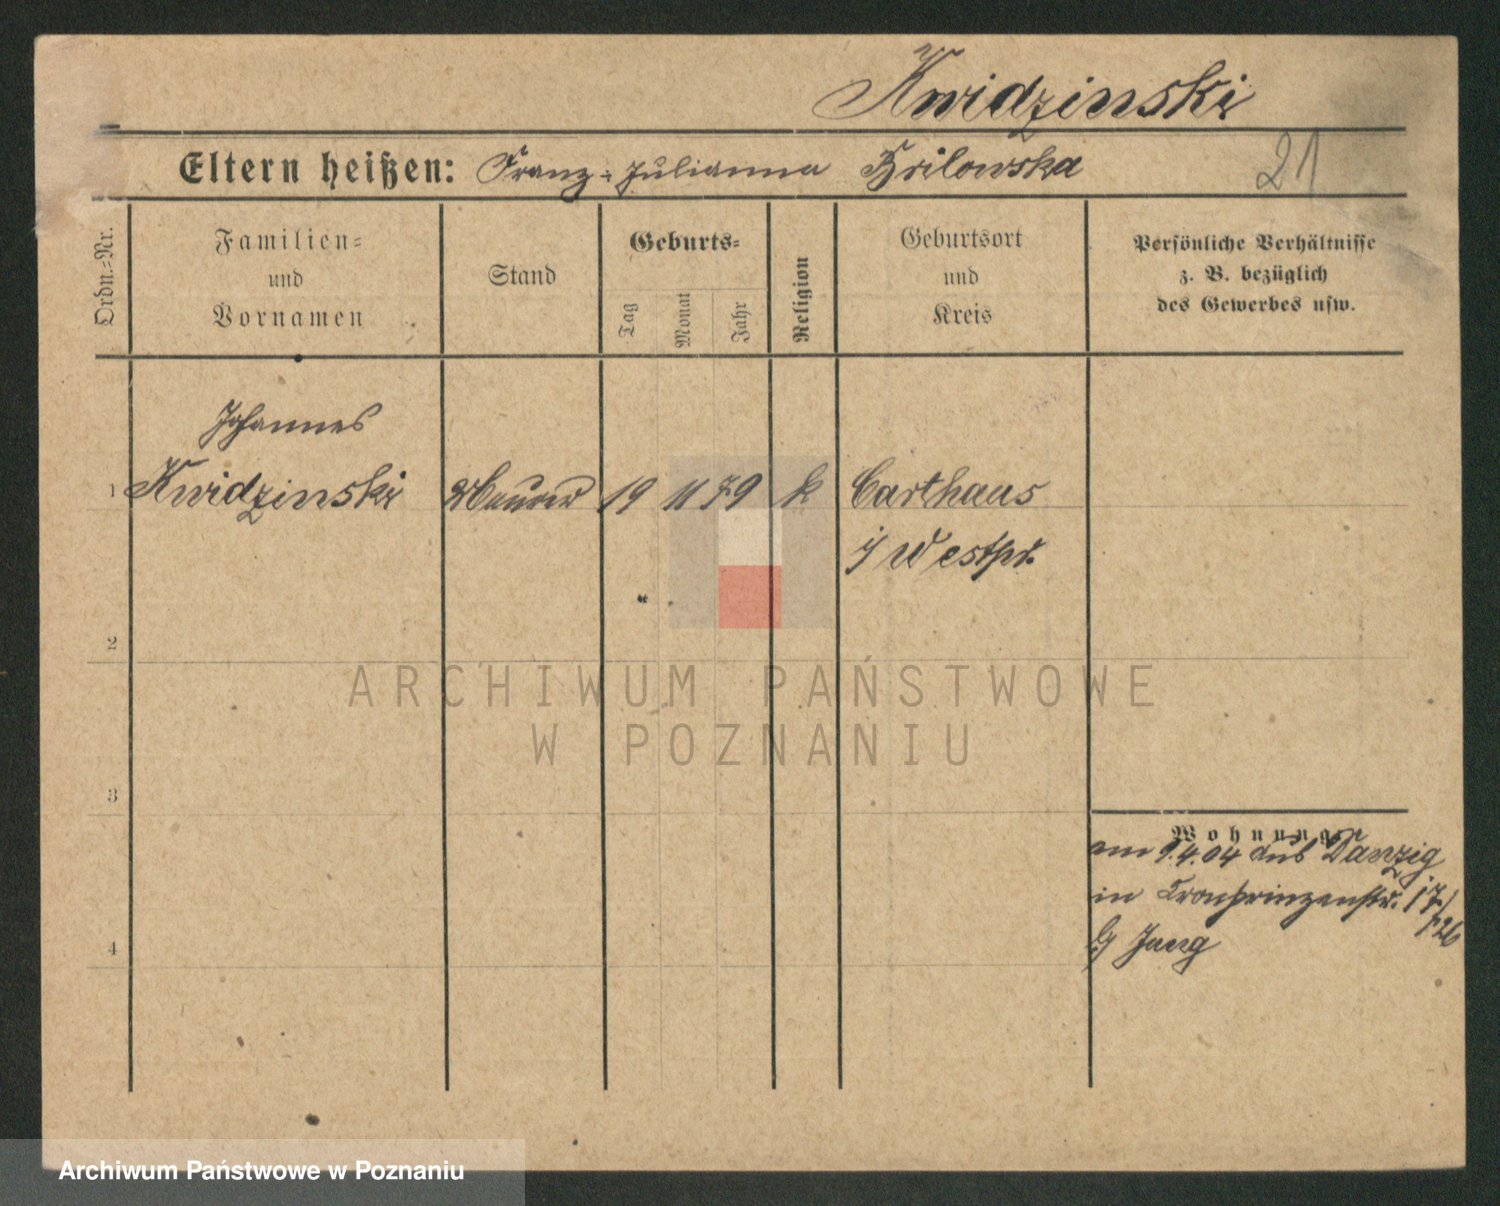 Kwidzinski
Eltern heißen: Franz - Julianna Brilowska
21
Ordn.-Nr.
Familien-
und
Vornamen
Stand
Geburts-
Tag
Monat
Jahr
Religion
Geburtsort
und
Kreis
Persönliche Verhältnisse
z. B. bezüglich
des Gewerbes usw.
Johannes
1 Kwidzinski Maurer 19 11 79 k Carthaus
i/ Westpr.
2
ARCHIWUM PAŃSTWOWE
W POZNANIU
3
Wohnung
am 9.4.04 aus Danzig
in Kronprinzenstr. 17/
b/ Jang
4
Archiwum Państwowe w Poznaniu